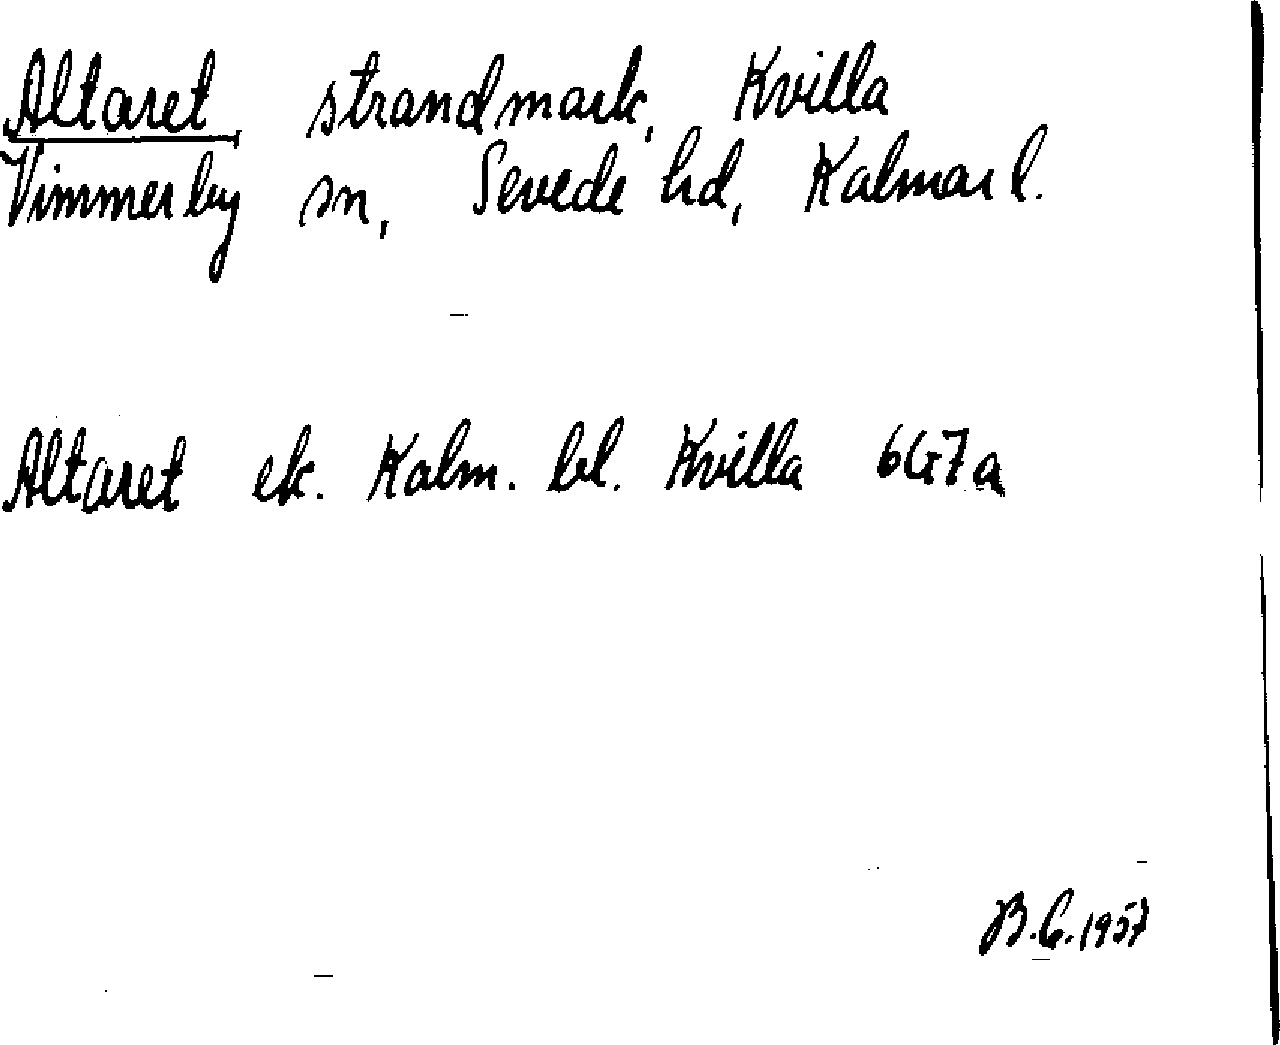 Altaret, strandmark, Kvilla
Vimmerby sn, Sevede hd, Kalmar l.
Altaret ek. Kalm. bl. Kvilla 6G7a
B.G. 1957